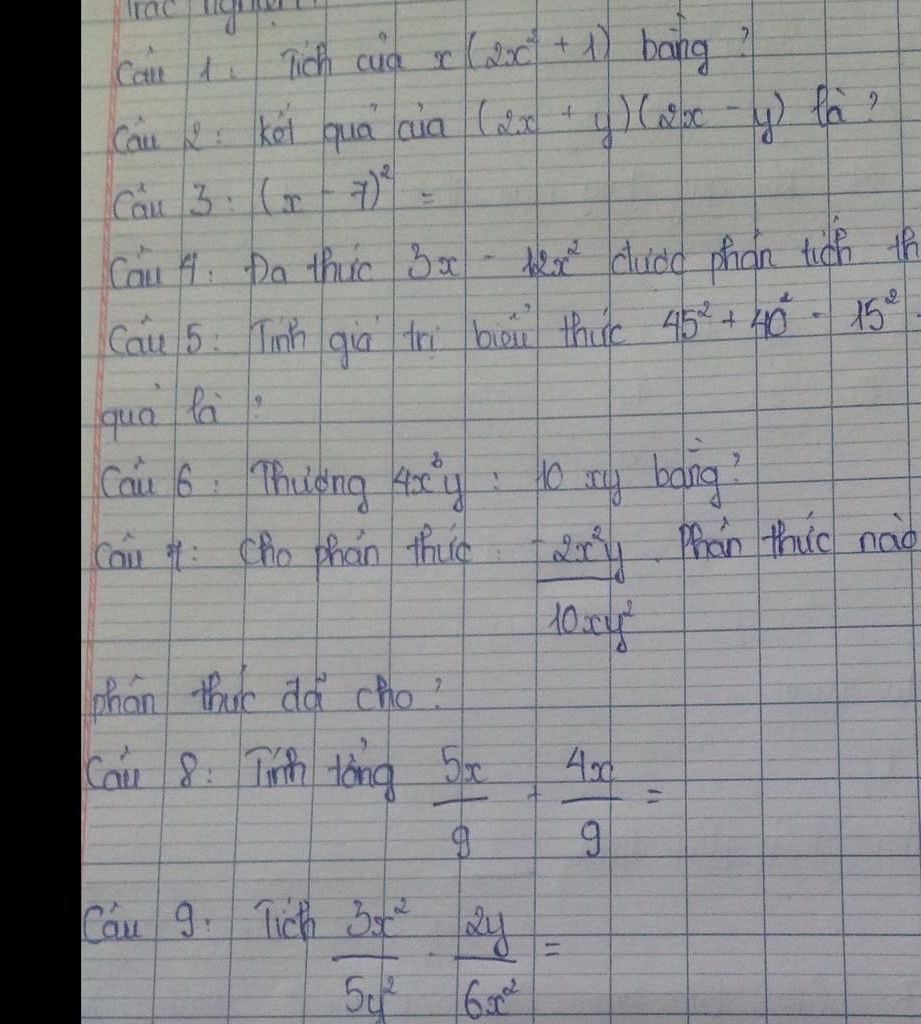 Trắc nghiệm
Câu 1: Tích của x(2x² + 1) bằng?
Câu 2: Kết quả của (2x + y)(2x - y) là?
Câu 3: (x - 7)² =
Câu 4: Đa thức 3x - 12x² được phân tích th
Câu 5: Tính giá trị biểu thức 45² + 40² - 15²
quả là?
Câu 6: Thương 4x³y : 10xy bằng?
Câu 7: Cho phân thức -2x²y/10xy². Phân thức nào
phân thức đã cho?
Câu 8: Tính tổng 5x/9 + 4x/9 =
Câu 9: Tích 3x²/5y² . 2y/6x² =